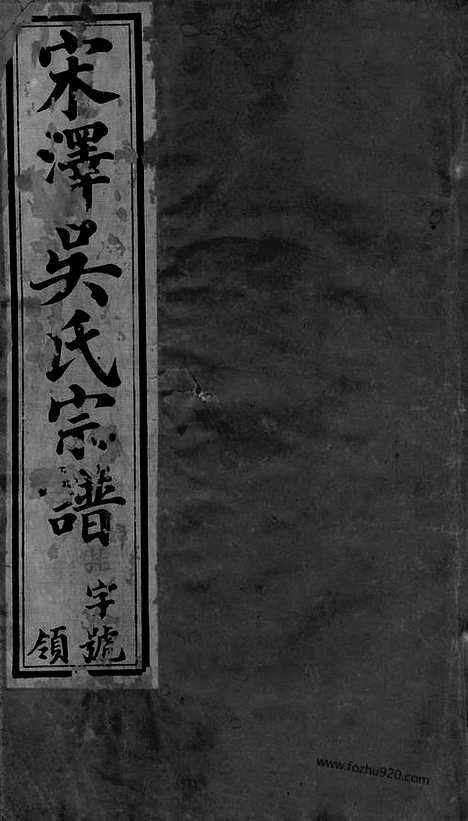 宋澤吳氏宗譜
字號
領
www.fozhu920.com